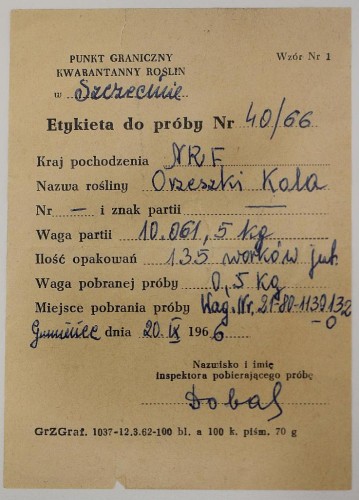 PUNKT GRANICZNY
KWARANTANNY ROŚLIN
w Szczecinie
Wzór Nr 1
Etykieta do próby Nr 40/66
Kraj pochodzenia NRF
Nazwa rośliny Orzeszki Kola
Nr — i znak partii —
Waga partii 10.061,5 kg
Ilość opakowań 135 worków jut.
Waga pobranej próby 0,5 kg
Miejsce pobrania próby Wag. Nr. 21-80-1139132
-0
Gumieńce dnia 20.IX 1966
Nazwisko i imię
inspektora pobierającego próbę
GrZGraf. 1037-12.3.62-100 bl. a 100 k. piśm. 70 g